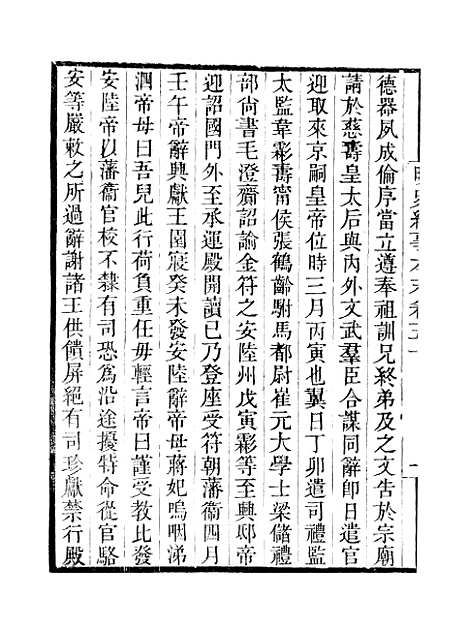 德器夙成倫序當立遵奉祖訓兄終弟及之文告於宗廟
請於慈壽皇太后與內外文武羣臣合謀同辭卽日遣官
迎取來京嗣皇帝位時三月丙寅也翼日丁卯遣司禮監
太監韋霦壽甯侯張鶴齡駙馬都尉崔元大學士梁儲禮
部尙書毛澄齎詔諭金符之安陸州戊寅霦等至興邸帝
迎詔國門外至承運殿開讀已乃登座受符朝藩衞四月
壬午帝辭興獻王園寢癸未發安陸辭帝母蔣妃嗚咽涕
泗帝母曰吾兒此行荷負重任毋輕言帝曰謹受教比發
安陸帝以藩衞官校不隸有司恐爲沿途擾特命從官駱
安等嚴敕之所過辭謝諸王供饋屏絕有司珍獻禁行殿